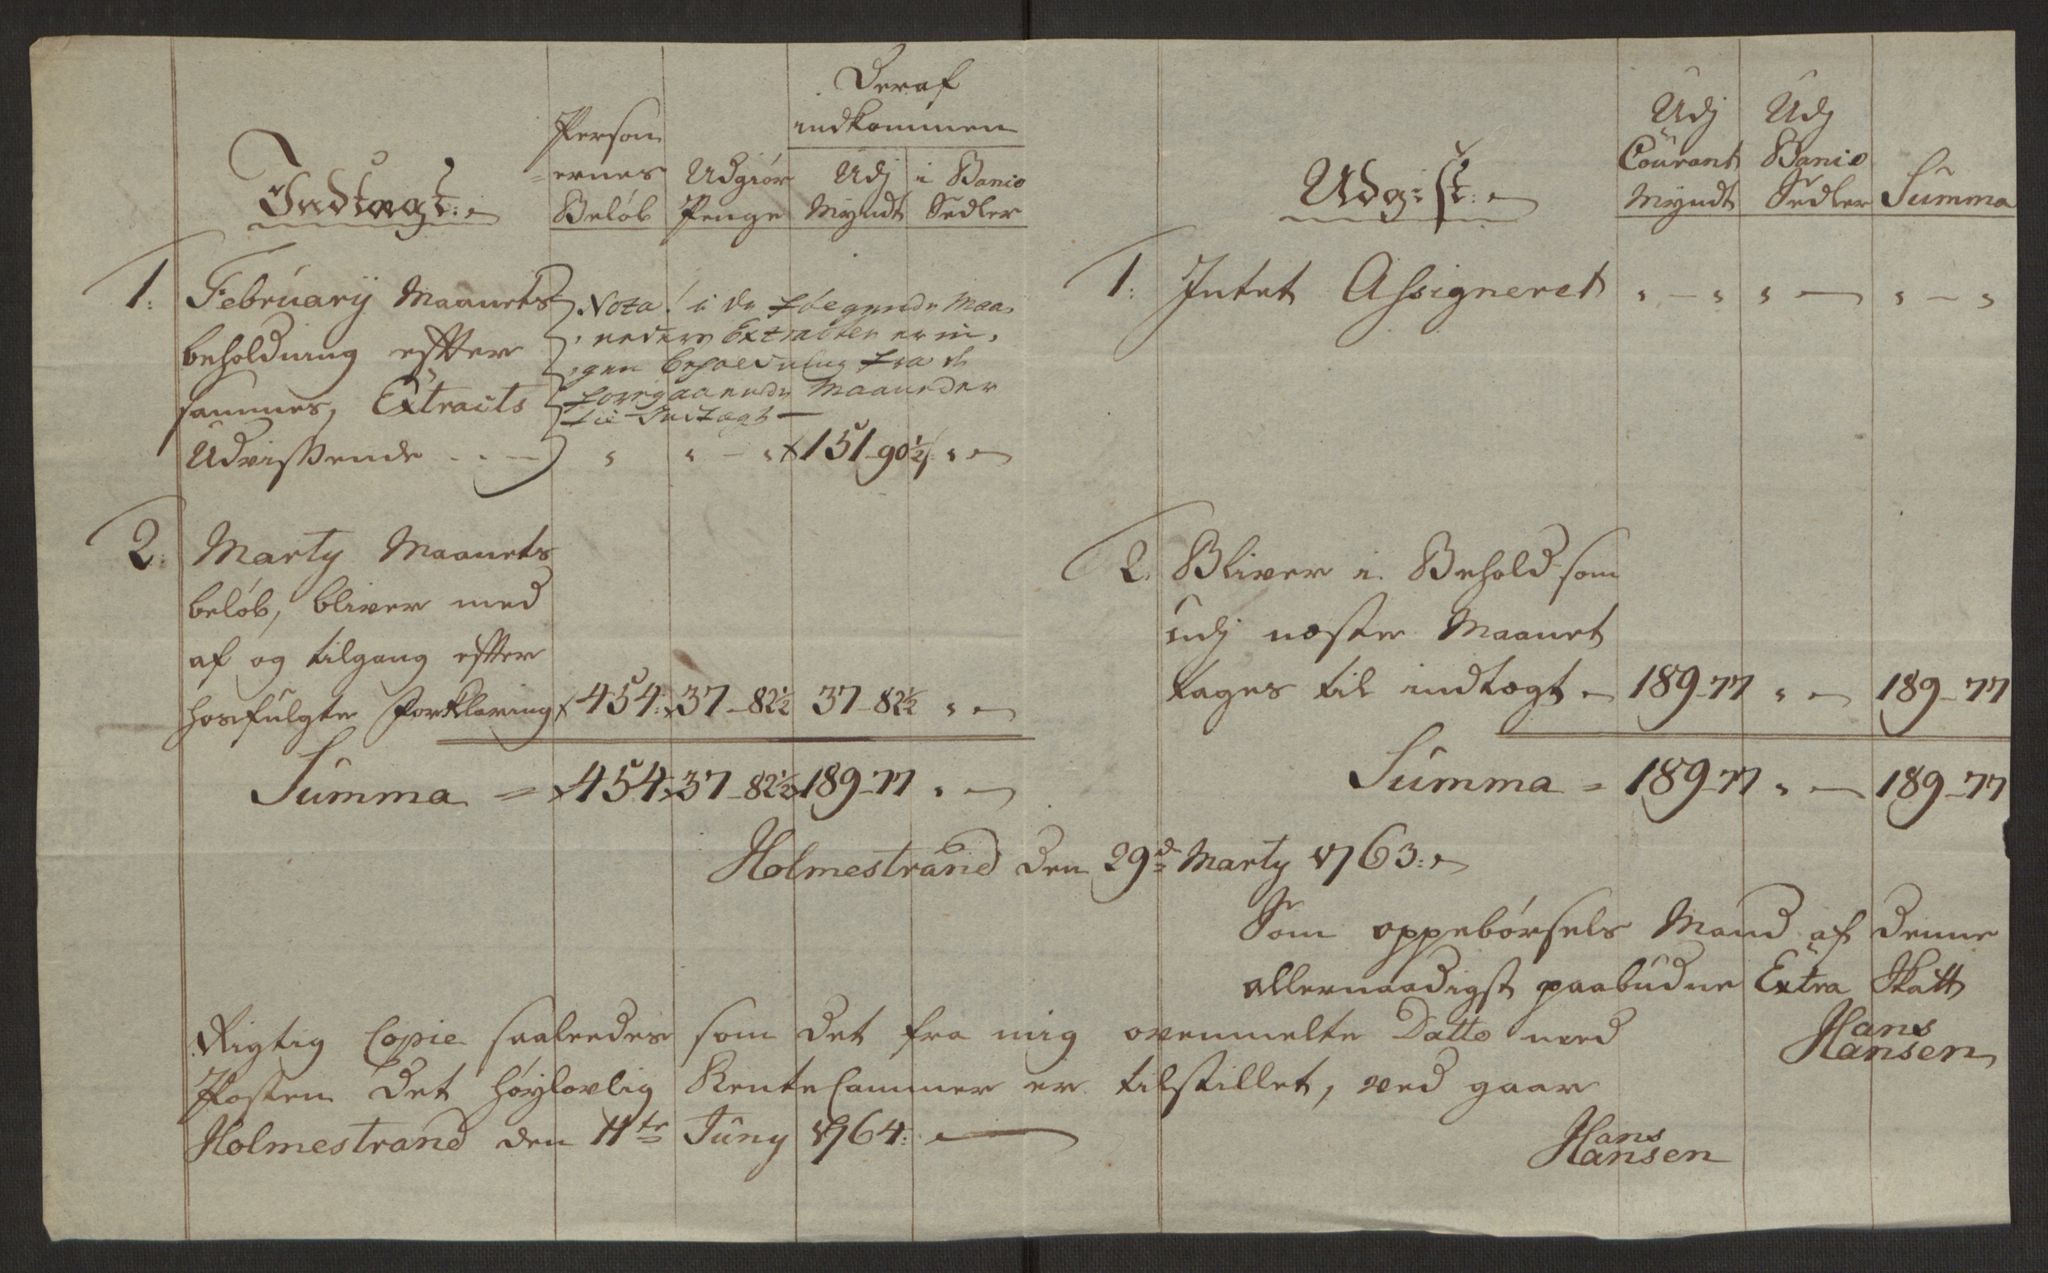 Indtægt:
Person
ernes
Beløb
Udgiør
Penge
Deraf
indkommen
Udj
Myndt
i Banco
Sedler
1. February Maanets
beholdning effter
sammes, Extracts
Udvissende
Nota! i de følgende Maa,
neders Extracter er in,
gen beholdning fra de
foregaaende Maaneder
til Indtægt
151-90½
2. Marty Maanets
beløb, bliver med
af og tilgang effter
hosfulgte Forklaring 454: 37-82½ 37-82½
Summa = 454 37-82½ 189-77
Udgift:
Udj
Courant
Myndt
Udj
Banco
Sedler
Summa
1. Intet Assigneret
2. Bliver i Behold som
udj næste Maanet
tages til indtægt 189-77 189-77
Summa = 189-77 189-77
Holmestrand den 29de Marty 1763:
Som oppebørsels Mand af denne
allernaadigst paabudne Extra Skatt
Hans
Hansen
Rigtig Copie saaleedes som det fra mig ovenmelte Datto med
Posten det høylovlig RenteCammer er tilstillet, ved gaar
Holmestrand den 11te Juny 1764:
Hans
Hansen